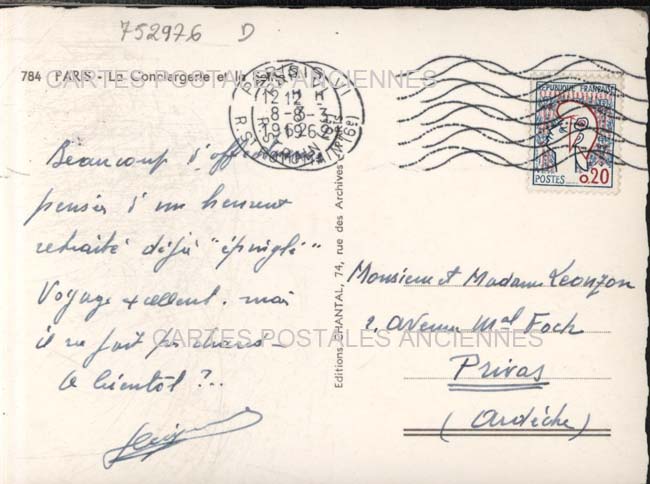 752976 D
784 PARIS - La Conciergerie et la
CARTES POSTALES ANCIENNES
PARIS
12 H
8-8
1962
R. ST ROMAIN (6e)
REPUBLIQUE FRANÇAISE
POSTES 0,20
Beaucoup d'affectueuses
pensées d'un heureux
retraité déjà "épinglé"
Voyage excellent. mais
il ne fait pas chaud -
A bientôt ?..
Editions CHANTAL, 74, rue des Archives - PARIS
Monsieur et Madame Leonzon
2, avenue Mal Foch
CARTES POSTALES ANCIENNES
Privas
(Ardèche)